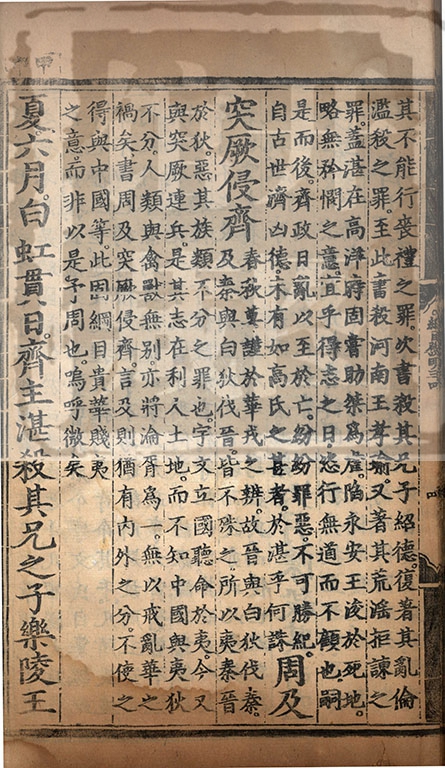 其不能行喪禮之罪次書殺其兄子紹德復著其亂倫
濫殺之罪至此書殺河南王孝瑜又著其荒淫拒諫之
罪蓋湛在高洋時固嘗助桀爲虐陷永安王浚於死地
略無矜憫之意宜乎得志之日恣行無道而不顧也嗣
是而後齊政日亂以至於亡紛紛罪惡不可勝紀
自古世濟凶德未有如高氏之甚者於湛乎何誅 周及
突厥侵齊 春秋莫謹於華戎之辨故晉與白狄伐秦
及秦與白狄伐晉皆不殊之所以夷秦晉
於狄惡其族類不分之罪也宇文立國聽命於夷今又
與突厥連兵是其志在利人土地而不知中國與夷狄
不分人類與禽獸無別亦將淪胥爲一無以戒亂華之
禍矣書周及突厥侵齊言及則猶有內外之分不使之
得與中國等此固綱目貴華賤夷
之意而非以是予周也嗚呼微矣
夏六月白虹貫日齊主湛殺其兄之子樂陵王